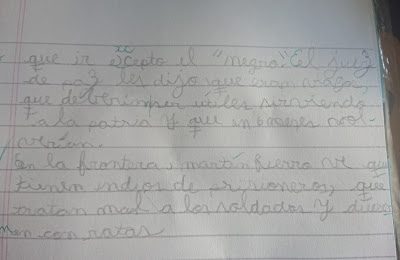 que ir excepto el "negro". El juez
de paz les dijo que eran vagos,
que útiles sirviendo
a la patria y que in 6 meses vol-
verían.
En la frontera, martín fierro ve que
tienen indios de prisioneros, que
tratan mal a los soldados y duer
men con ratas